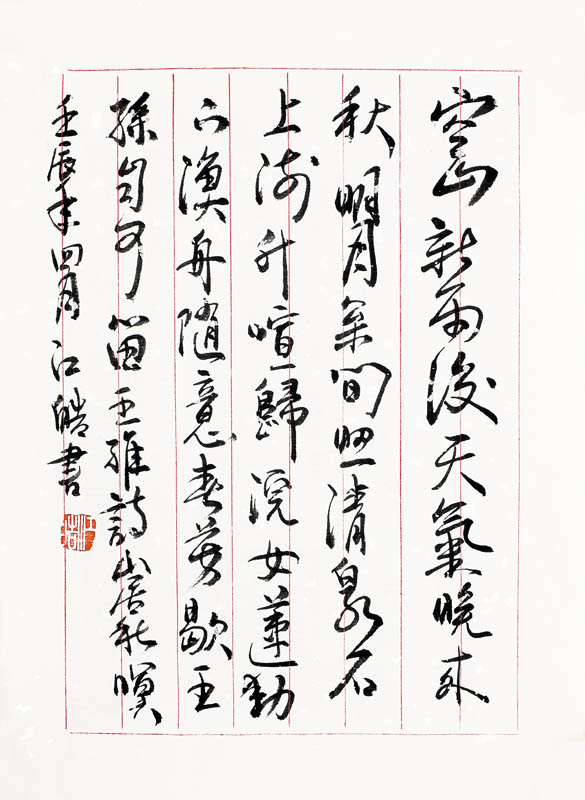 空山新雨後天氣晚來
秋明月枀間照清泉石
上流竹喧歸浣女蓮動
下漁舟隨意春芳歇王
孫自可留王維詩山居秋暝
壬辰年四月江皓書